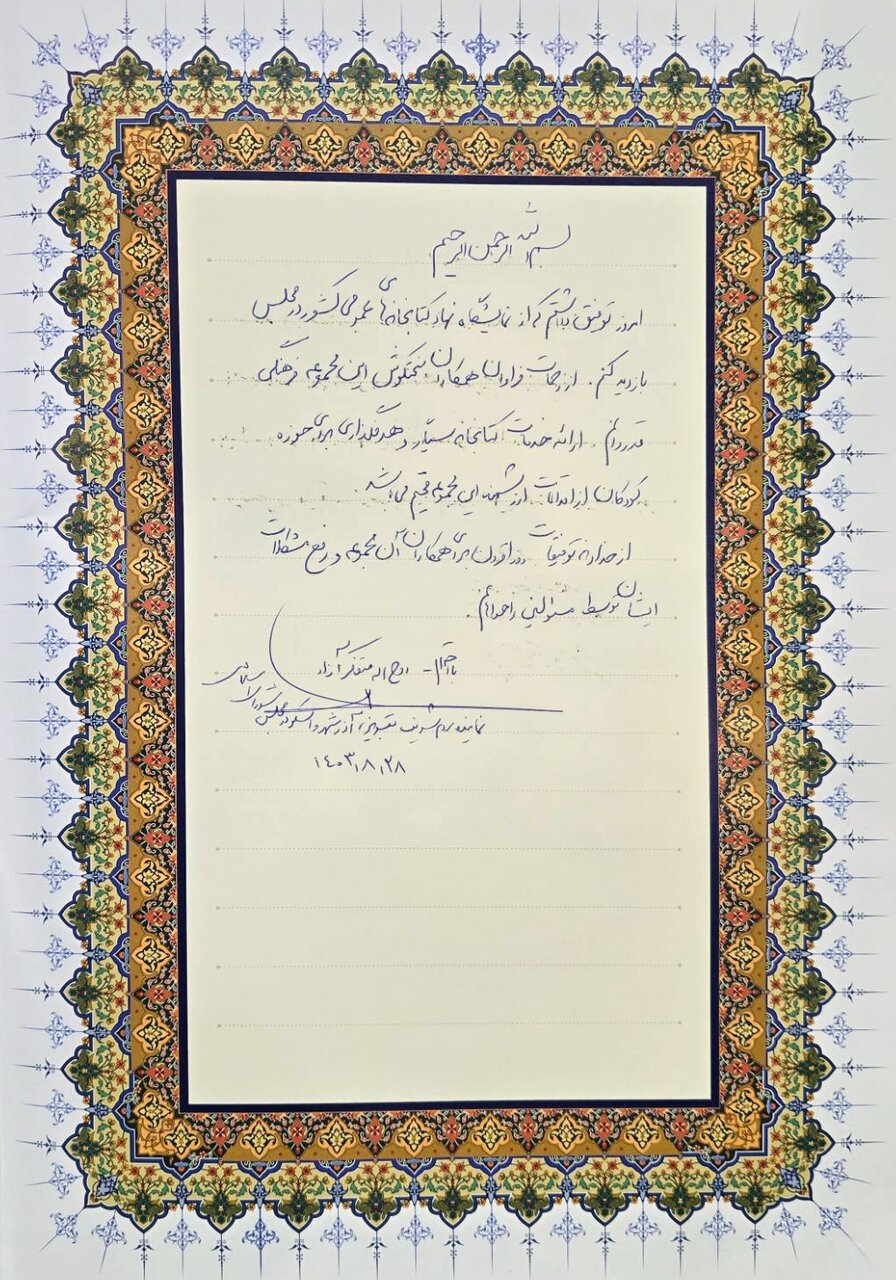 بسم الله الرحمن الرحیم
امروز توفیق داشتم که از نمایشگاه نهاد کتابخانه‌های عمومی کشور در مجلس
بازدید کنم. از زحمات فراوان همکاران سختکوش این مجموعه فرهنگی
قدردانم. ارائه خدمات کتابخانه سیار و هدفگذاری برای حوزه
کودکان از اقدامات ارزشمند این مجموعه قیم می‌باشد.
از خداوند توفیقات روزافزون برای همکاران آن مجموعه و رفع مشکلات
ایشان توسط مسئولین را خواهانم.
با احترام - روح اله متفکر آزاد
نماینده مردم شریف تبریز، آذرشهر و اسکو در مجلس شورای اسلامی
۱۴۰۳/۸/۲۸